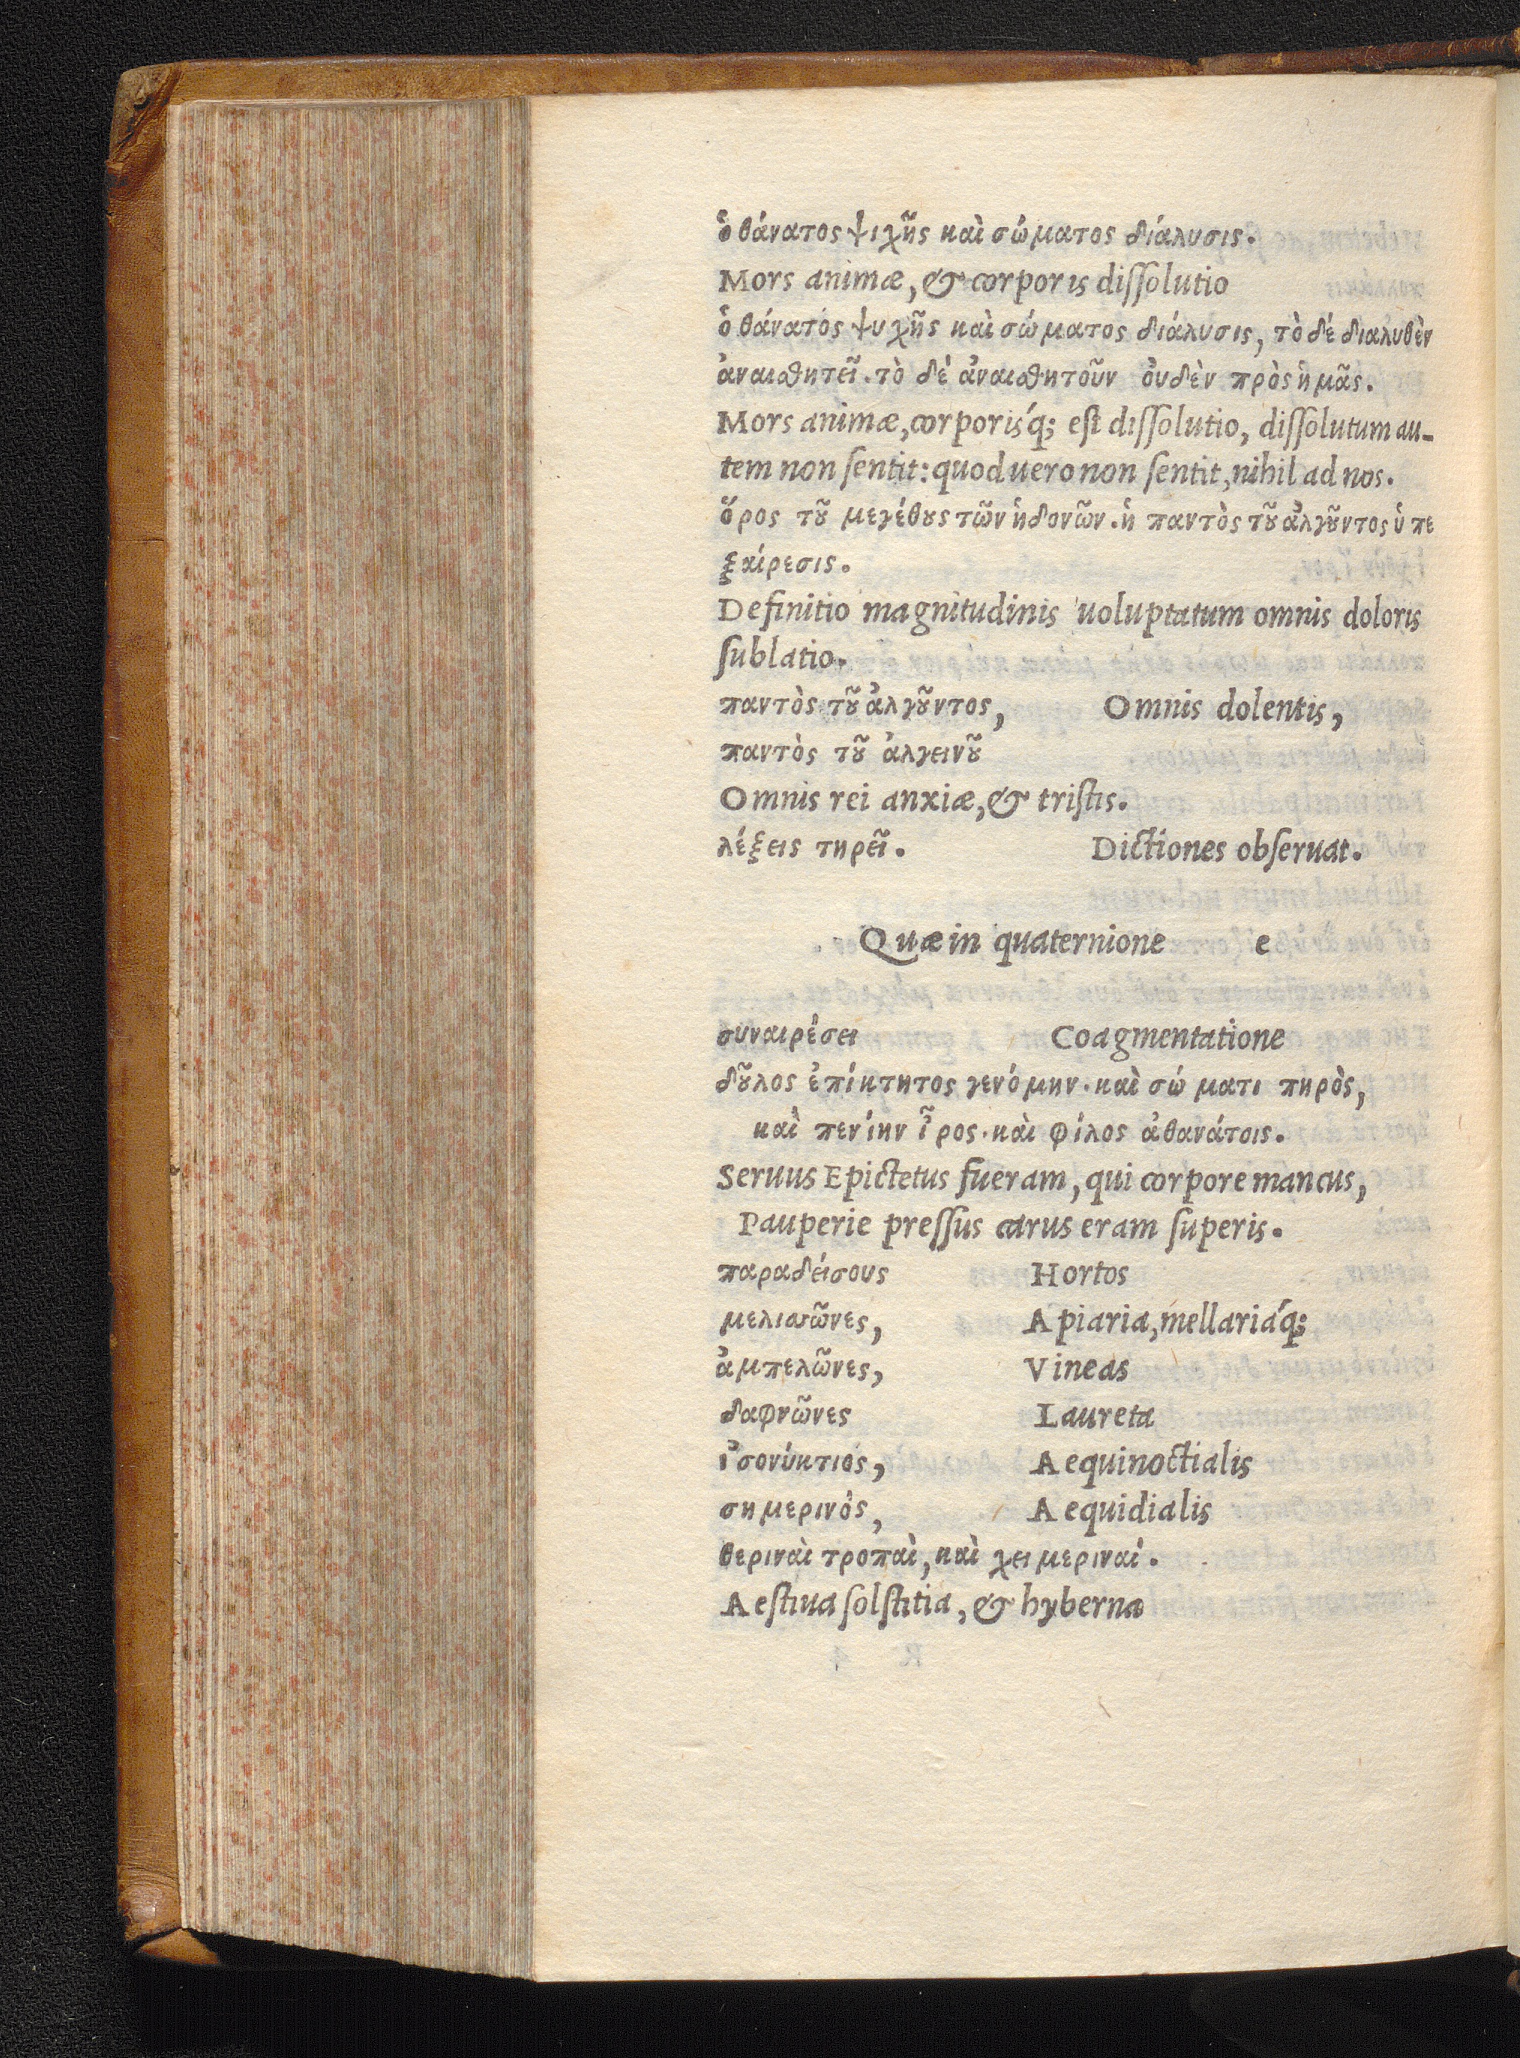 ὁ θάνατος ψιχῆς καὶ σώματος διάλυσις.
Mors animæ, & corporis dissolutio
ὁ θάνατος ψυχῆς καὶ σώματος διάλυσις, τὸ δέ διαλυθὲν
ἀναισθητεῖ. τὸ δέ ἀναισθητοῦν οὐδὲν πρὸς ἡμᾶς.
Mors animæ, corporis'q; est dissolutio, dissolutum au-
tem non sentit: quod uero non sentit, nihil ad nos.
ὅρος τοῦ μεγέθους τῶν ἡδονῶν. ἡ παντὸς τοῦ ἀλγοῦντος ὑπε
ξαίρεσις.
Definitio magnitudinis uoluptatum omnis doloris
sublatio.
παντὸς τοῦ ἀλγοῦντος, Omnis dolentis,
παντὸς τοῦ ἀλγεινοῦ
Omnis rei anxiæ, & tristis.
λέξεις τηρεῖ. Dictiones obseruat.
Quæ in quaternione e
συναιρέσει Coagmentatione
δοῦλος ἐπίκτητος γενόμην. καὶ σώματι πηρὸς,
καὶ πενίην ἶρος. καὶ φίλος ἀθανάτοις.
Seruus Epictetus fueram, qui corpore mancus,
Pauperie pressus carus eram superis.
παραδείσους Hortos
μελισσῶνες, Apiaria, mellaria'q;
ἀμπελῶνες, Vineas
δαφνῶνες Laureta
ἰσονύκτιος, Aequinoctialis
σημερινὸς, Aequidialis
θεριναὶ τροπαὶ, καὶ χειμεριναί.
Aestiua solstitia, & hyberna